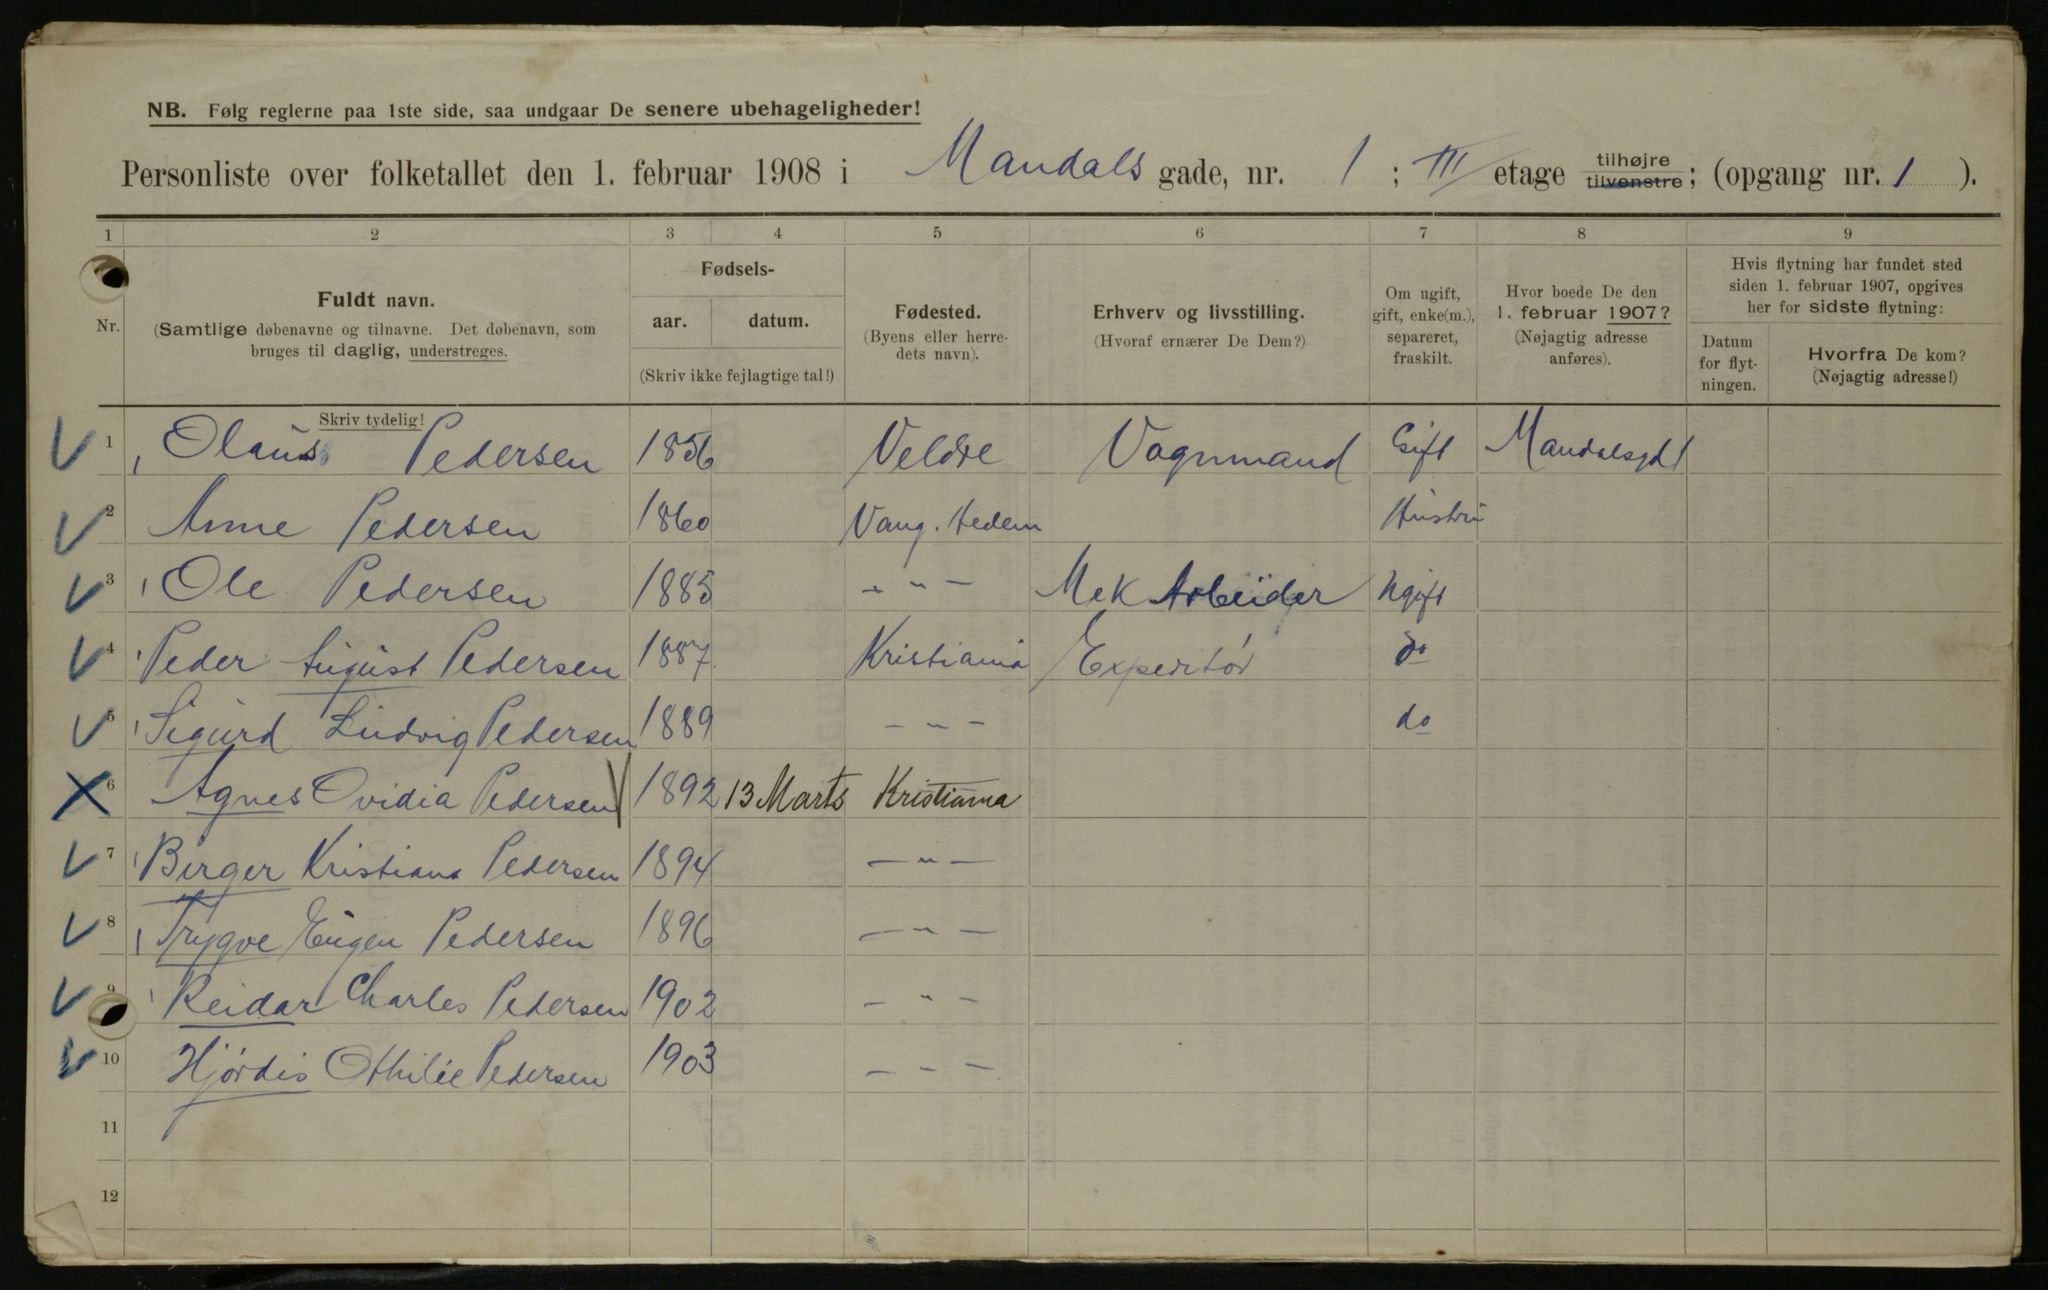 NB. Følg reglerne paa 1ste side, saa undgaar De senere ubehageligheder!
Personliste over folketallet den 1. februar 1908 i Mandals gade, nr. 1; III etage tilhøjre tilvenstre; (opgang nr. 1 ).
1 2 3 4 5 6 7 8 9
Nr.
Fuldt navn.
(Samtlige døbenavne og tilnavne. Det døbenavn, som
bruges til daglig, understreges.
Skriv tydelig!
Fødsels-
aar. datum.
(Skriv ikke fejlagtige tal!)
Fødested.
(Byens eller herre-
dets navn).
Erhverv og livsstilling.
(Hvoraf ernærer De Dem?)
Om ugift,
gift, enke(m.),
separeret,
fraskilt.
Hvor boede De den
1. februar 1907?
(Nøjagtig adresse
anføres).
Hvis flytning har fundet sted
siden 1. februar 1907, opgives
her for sidste flytning:
Datum
for flyt-
ningen.
Hvorfra De kom?
(Nøjagtig adresse!)
1 Olaus Pedersen 1856 Veldre Vognmand Gift Mandalsgd 1
2 Anne Pedersen 1860 Vang. Hedem Hustru
3 Ole Pedersen 1885 - " - Mek Arbeider Ugift
4 Peder August Pedersen 1887 Kristiania Expeditør do
5 Sigurd Ludvig Pedersen 1889 - " - do
6 Agnes Ovidia Pedersen 1892 13 Marts Kristiania
7 Birger Kristiana Pedersen 1894 - " -
8 Trygve Eugen Pedersen 1896 - " -
9 Reidar Charles Pedersen 1902 - " -
10 Hjørdis Othilie Pedersen 1903 - " -
11
12